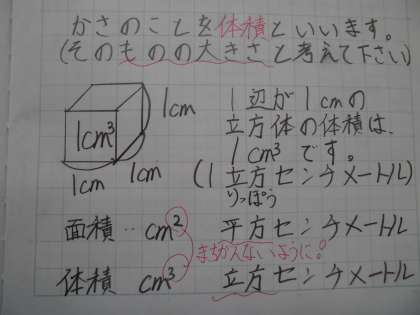 かさのことを体積といいます。
(そのものの大きさと考えて下さい)
1cm³
1cm
1cm
1cm
1辺が1cmの
立方体の体積は、
1cm³です。
(1立方センチメートル)
りっぽう
面積‥cm² 平方センチメートル
まちがえないように。
体積 cm³ 立方センチメートル